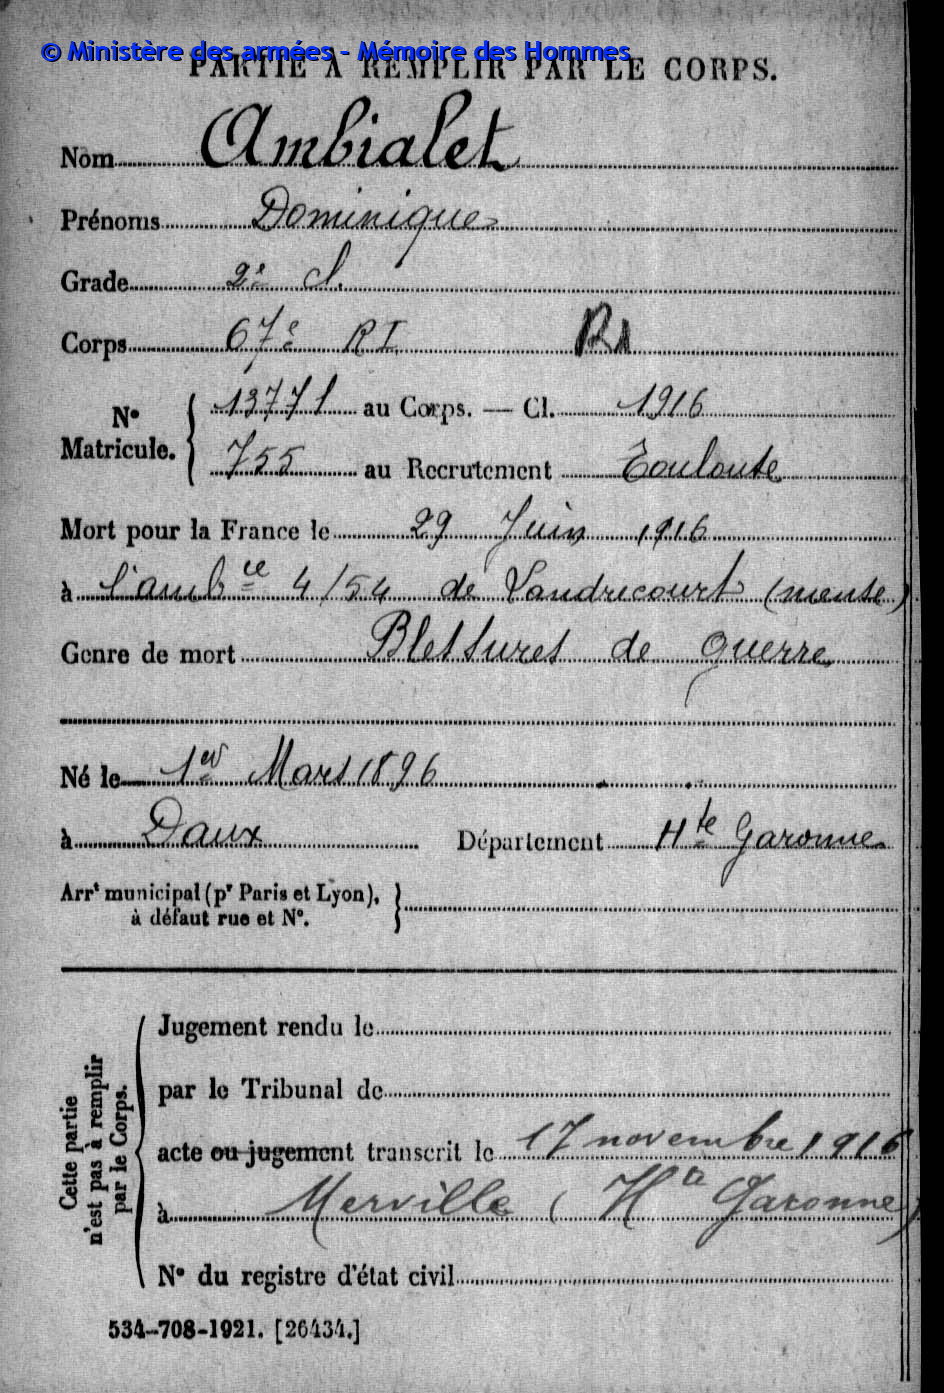 © Ministère des armées - Mémoire des Hommes
PARTIE À REMPLIR PAR LE CORPS.
Nom Ambialet
Prénoms Dominique
Grade 2e cl.
Corps 67e RI RI
N° Matricule. { 13771 au Corps. — Cl. 1916
755 au Recrutement Toulouse
Mort pour la France le 29 Juin 1916
à l'ambce 4/54 de Landrecourt (meuse)
Genre de mort Blessures de guerre
Né le 1er Mars 1896
à Daux Département Hte Garonne
Arrt municipal (pr Paris et Lyon), à défaut rue et N°. }
Cette partie n'est pas à remplir par le Corps.
Jugement rendu le
par le Tribunal de
acte ou jugement transcrit le 17 novembre 1916
à Merville (Hte Garonne)
N° du registre d'état civil
534-708-1921. [26434.]